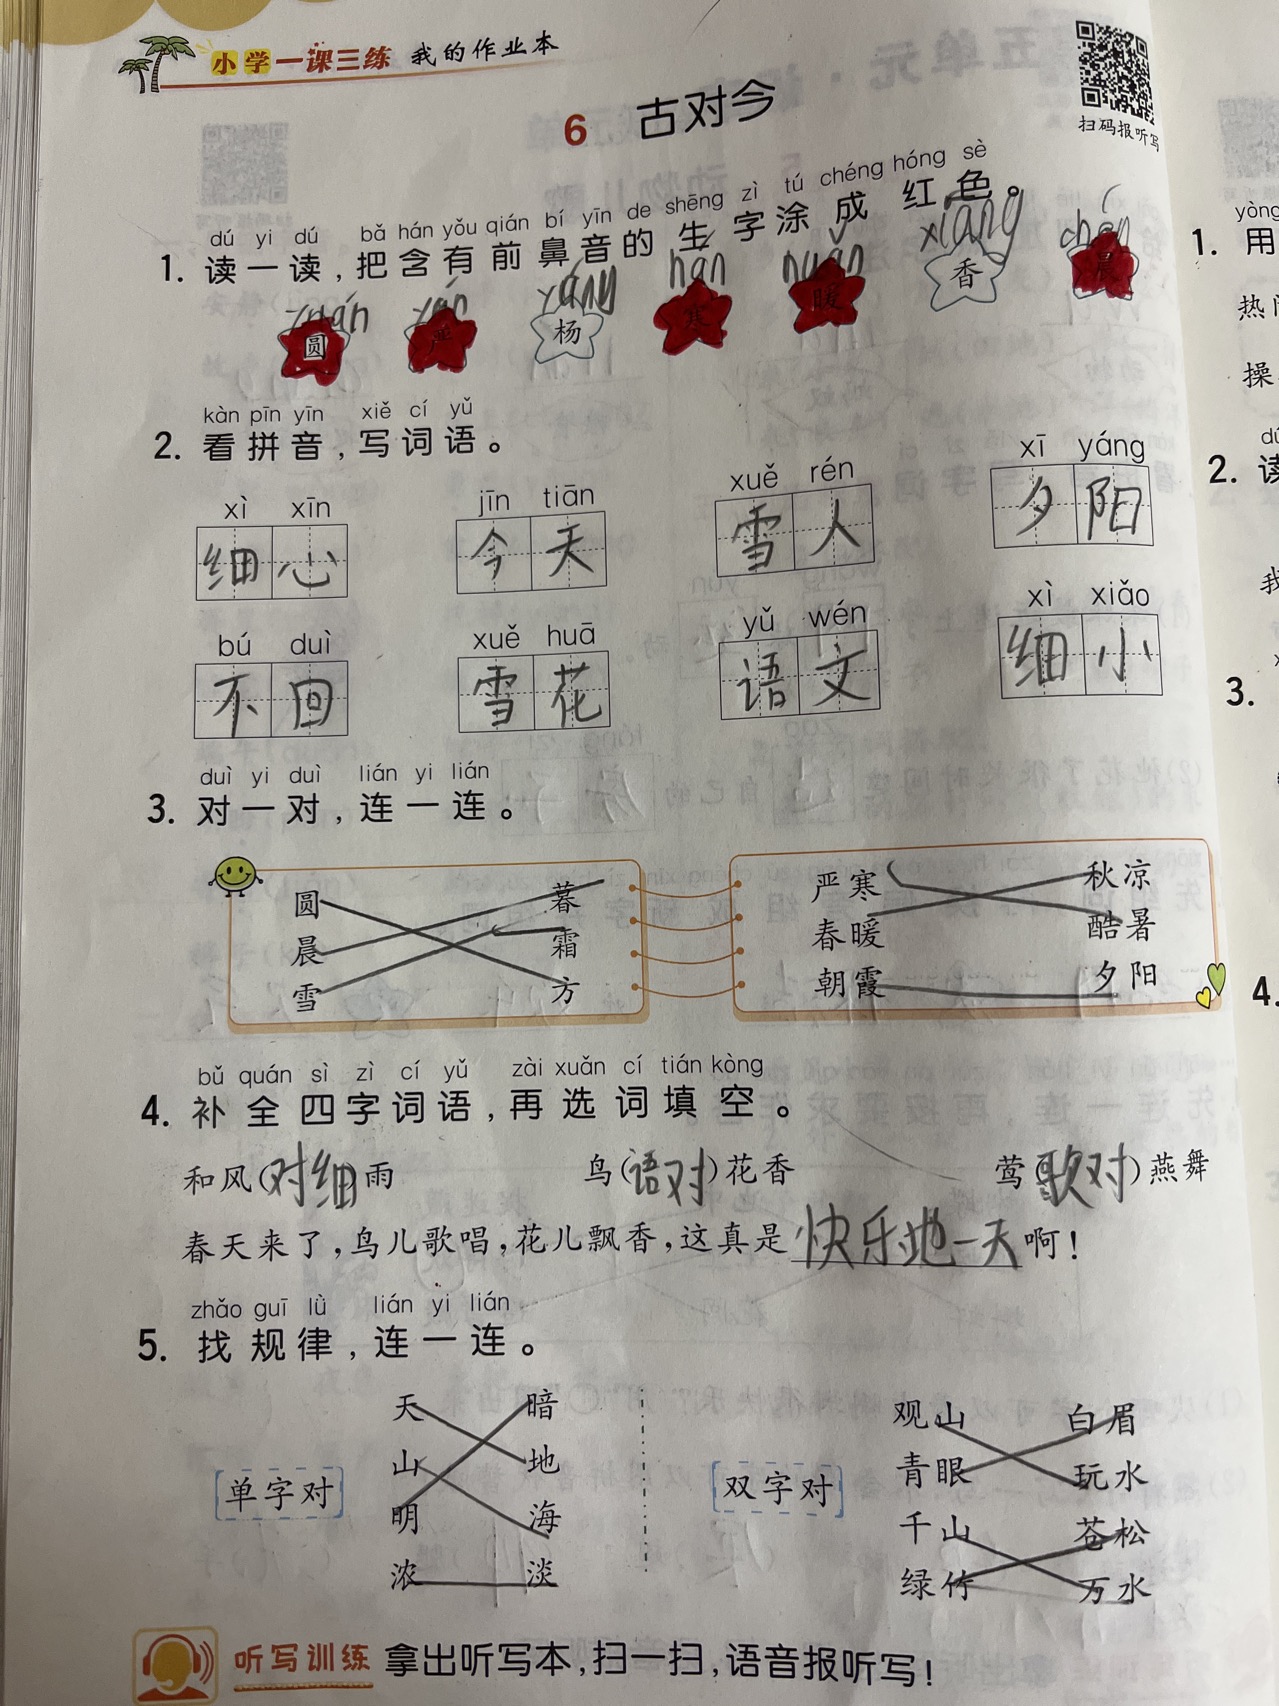 小学一课三练 我的作业本
6 古对今
扫码报听写
dú yi dú bǎ hán yǒu qián bí yīn de shēng zì tú chéng hóng sè
1. 读一读，把含有前鼻音的生字涂成红色。
yuán yán yáng hán nuǎn xiāng chén
圆 严 杨 寒 暖 香 晨
kàn pīn yīn xiě cí yǔ
2. 看拼音，写词语。
xì xīn jīn tiān xuě rén xī yáng
细心 今天 雪人 夕阳
bú duì xuě huā yǔ wén xì xiǎo
不回 雪花 语文 细小
duì yi duì lián yi lián
3. 对一对，连一连。
圆 暮 严寒 秋凉
晨 霜 春暖 酷暑
雪 方 朝霞 夕阳
bǔ quán sì zì cí yǔ zài xuǎn cí tián kòng
4. 补全四字词语，再选词填空。
和风(对细)雨 鸟(语对)花香 莺(歌对)燕舞
春天来了，鸟儿歌唱，花儿飘香，这真是快乐地一天啊！
zhǎo guī lǜ lián yi lián
5. 找规律，连一连。
天 暗 观山 白眉
山 地 青眼 玩水
单字对 双字对
明 海 千山 苍松
浓 淡 绿竹 万水
听写训练 拿出听写本，扫一扫，语音报听写！
yòng
1. 用
热
操
2. 读
我
3.
4.